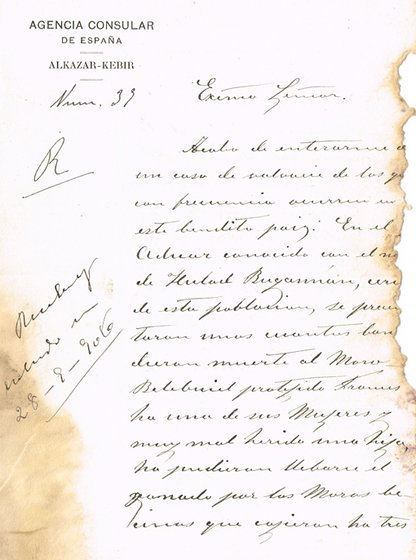 AGENCIA CONSULAR
DE ESPAÑA
ALKAZAR-KEBIR
Num. 39
Exímo Señor.
R
Acabo de enterarme
un caso de
con frecuencia ocurren en
este bendito pais. En el
Aduar conocido con el no
de Hulad Bugammán, cer
de esta poblacion, se presen
taron unos cuantos ban
dieran muerte al Moro
protejido Frances
ha una de sus Mujeres y
muy mal herido una hija,
no pudieron llebarse el
ganado por los Moros be
cinos que cojieron ha tres
28-9-906